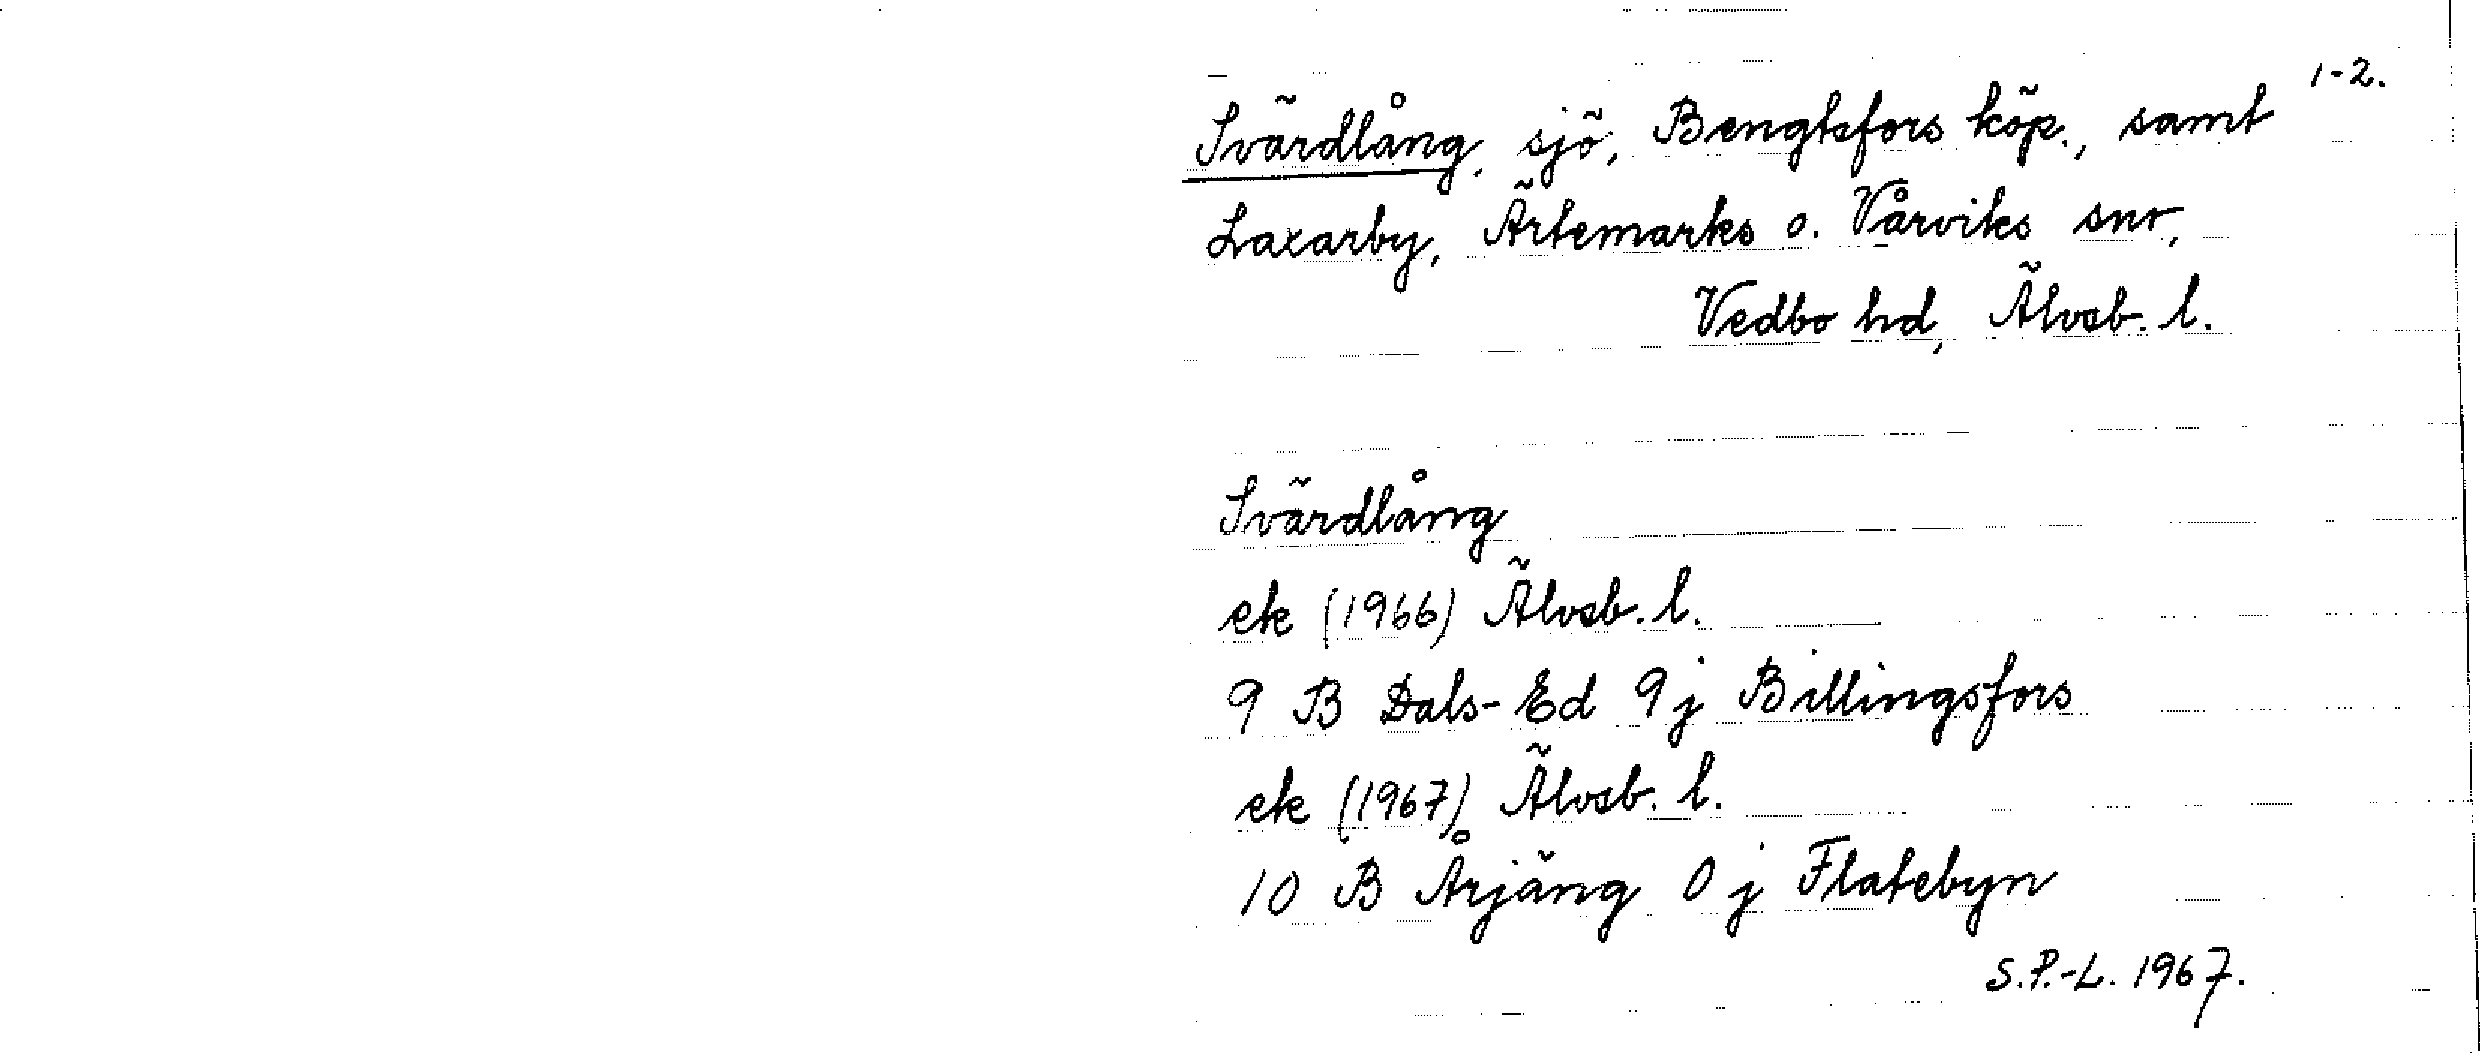 1-2.
Svärdlång, sjö, Bengtsfors köp., samt
Laxarby, Ärtemarks o. Vårviks snr,
Vedbo hd, Älvsb. l.
Svärdlång
ek (1966) Älvsb. l.
9 B Dals-Ed 9 j Billingsfors
ek (1967) Älvsb. l.
10 B Årjäng 0 j Flatebyn
S.P.-L. 1967.